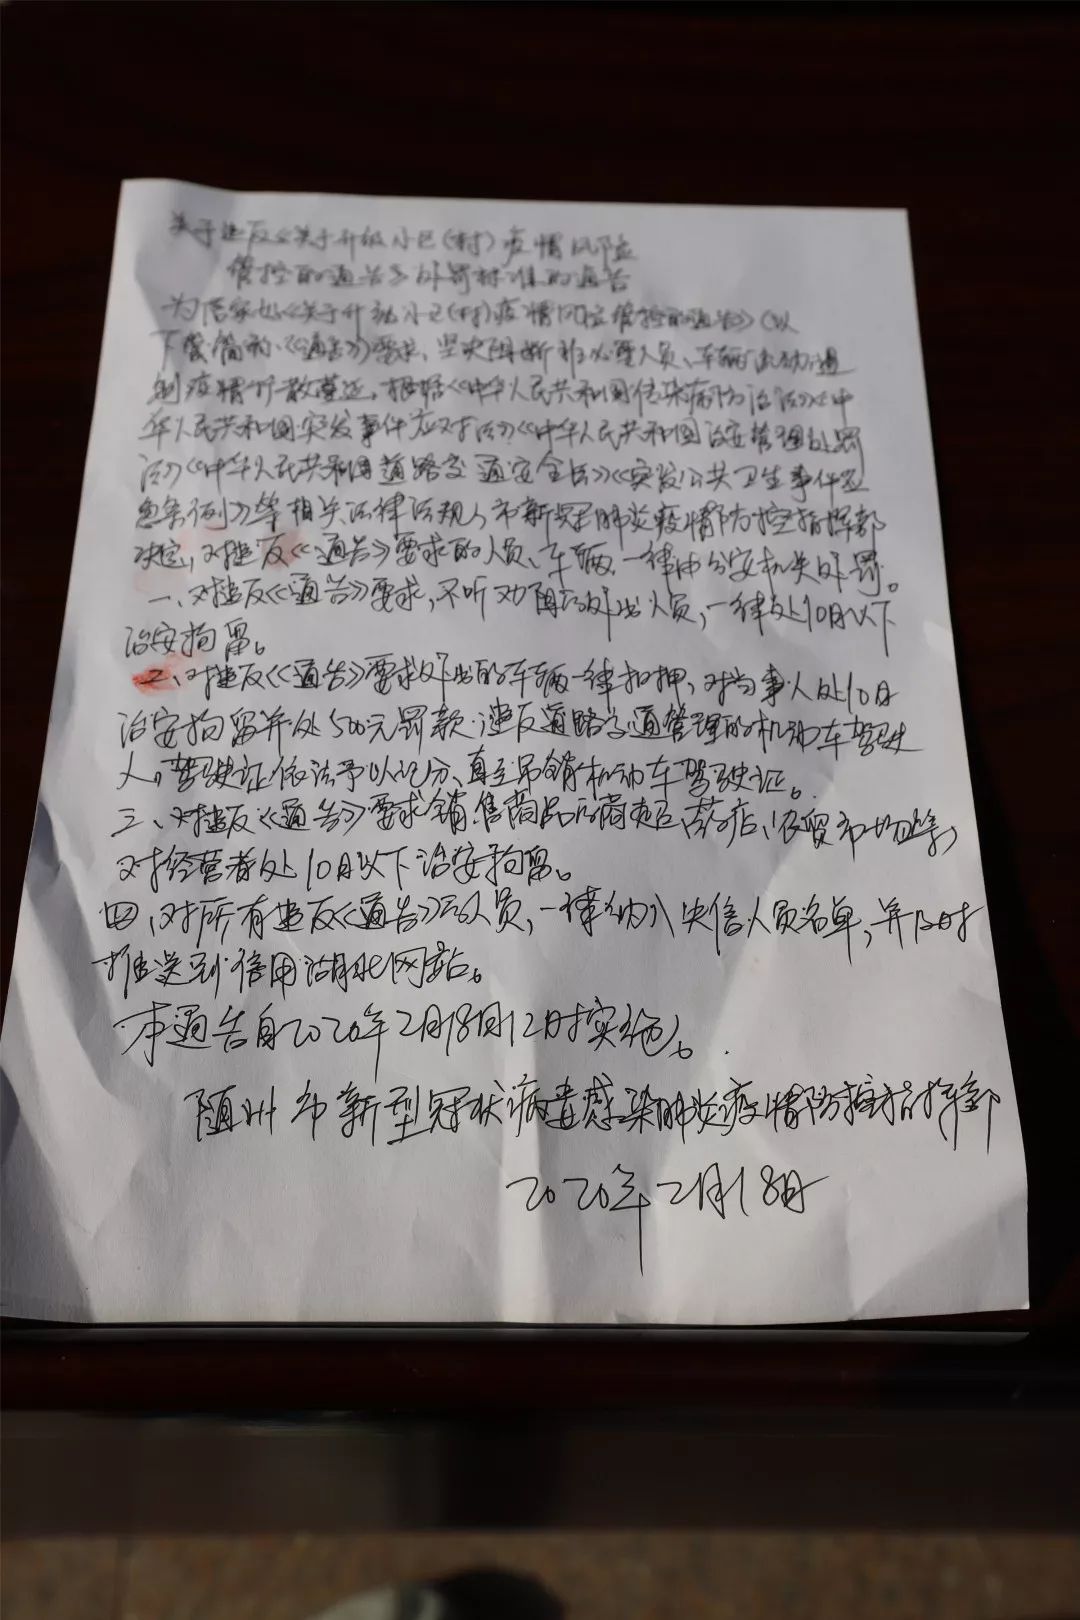 关于违反《关于升级小区（村）疫情风险
管控的通告》处罚标准的通告
为落实好《关于升级小区（村）疫情风险管控的通告》（以
下简称《通告》）要求，坚决阻断非必要人员、车辆流动，遏
制疫情扩散蔓延，根据《中华人民共和国传染病防治法》《中
华人民共和国突发事件应对法》《中华人民共和国治安管理处罚
法》《中华人民共和国道路交通安全法》《突发公共卫生事件应
急条例》等相关法律法规，市新冠肺炎疫情防控指挥部
决定，对违反《通告》要求的人员、车辆，一律由公安机关处罚。
一、对违反《通告》要求，不听劝阻的外出人员，一律处10日以下
治安拘留。
二、对违反《通告》要求外出的车辆一律扣押，对当事人处10日
治安拘留并处500元罚款。违反道路交通管理的机动车驾驶
人，驾驶证依法予以记分、直至吊销机动车驾驶证。
三、对违反《通告》要求销售商品的商超、药店、农贸市场等，
对经营者处10日以下治安拘留。
四、对所有违反《通告》的人员，一律纳入失信人员名单，并及时
推送到信用湖北网站。
本通告自2020年2月18日12时实施。
随州市新型冠状病毒感染肺炎疫情防控指挥部
2020年2月18日